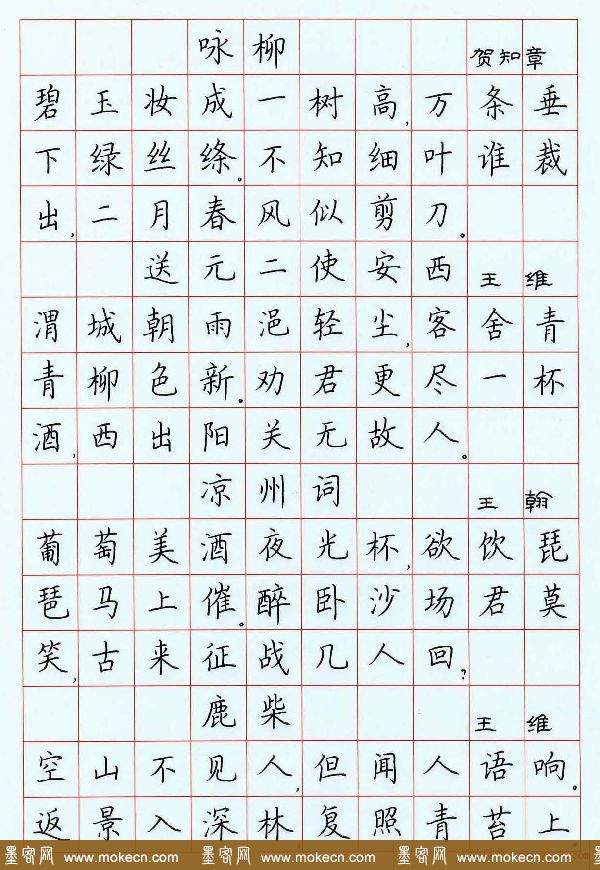 咏柳 贺知章
碧玉妆成一树高,万条垂
下绿丝绦。不知细叶谁裁
出,二月春风似剪刀。
送元二使安西 王维
渭城朝雨浥轻尘,客舍青
青柳色新。劝君更尽一杯
酒,西出阳关无故人。
凉州词 王翰
葡萄美酒夜光杯,欲饮琵
琶马上催。醉卧沙场君莫
笑,古来征战几人回?
鹿柴 王维
空山不见人,但闻人语响。
返景入深林,复照青苔上。
墨客网 www.mokecn.com 墨客网 www.mokecn.com 墨客网 www.mokecn.com